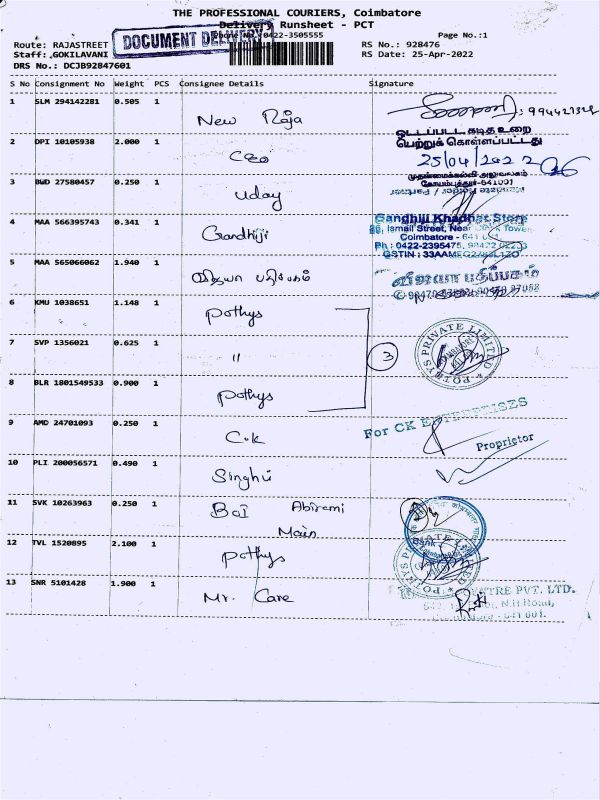 THE PROFESSIONAL COURIERS, Coimbatore
Delivery Runsheet - PCT
Phone No.:0422-3505555
Page No.:1
Route: RAJASTREET
DOCUMENT DELIVERY
RS No.: 928476
Staff: GOKILAVANI
RS Date: 25-Apr-2022
DRS No.: DCJB92847601
S No Consignment No Weight PCS Consignee Details Signature
1 SLM 294142281 0.505 1 New Raja
2 DPI 10105938 2.000 1 CEO
ஒட்டப்பட்ட கடித உறை
பெற்றுக் கொள்ளப்பட்டது
25/04/2022
முதன்மைக்கல்வி அலுவலகம்
கோயம்புத்தூர்-641001
3 BWD 27580457 0.250 1 Uday
4 MAA 566395743 0.341 1 Gandhiji
Gandhiji Khadhar Store
Ismail Street, Near Tower
Coimbatore - 641
Ph : 0422-2395475,
GSTIN :
5 MAA 565066062 1.940 1 விஜயா பதிப்பகம்
விஜயா பதிப்பகம்
6 KMU 1038651 1.148 1 Pothys
7 SVP 1356021 0.625 1 "
3
POTHYS PRIVATE LIMITED
8 BLR 1801549533 0.900 1 Pothys
9 AMD 24701093 0.250 1 C.K
For CK ENTERPRISES
Proprietor
10 PLI 200056571 0.490 1 Singhu
11 SVK 10263963 0.250 1 BOI Abirami
Main
Bank
12 TVL 1520895 2.100 1 Pothys
13 SNR 5101428 1.900 1 Mr. Care
PVT. LTD.
N.H Road,
641 001.